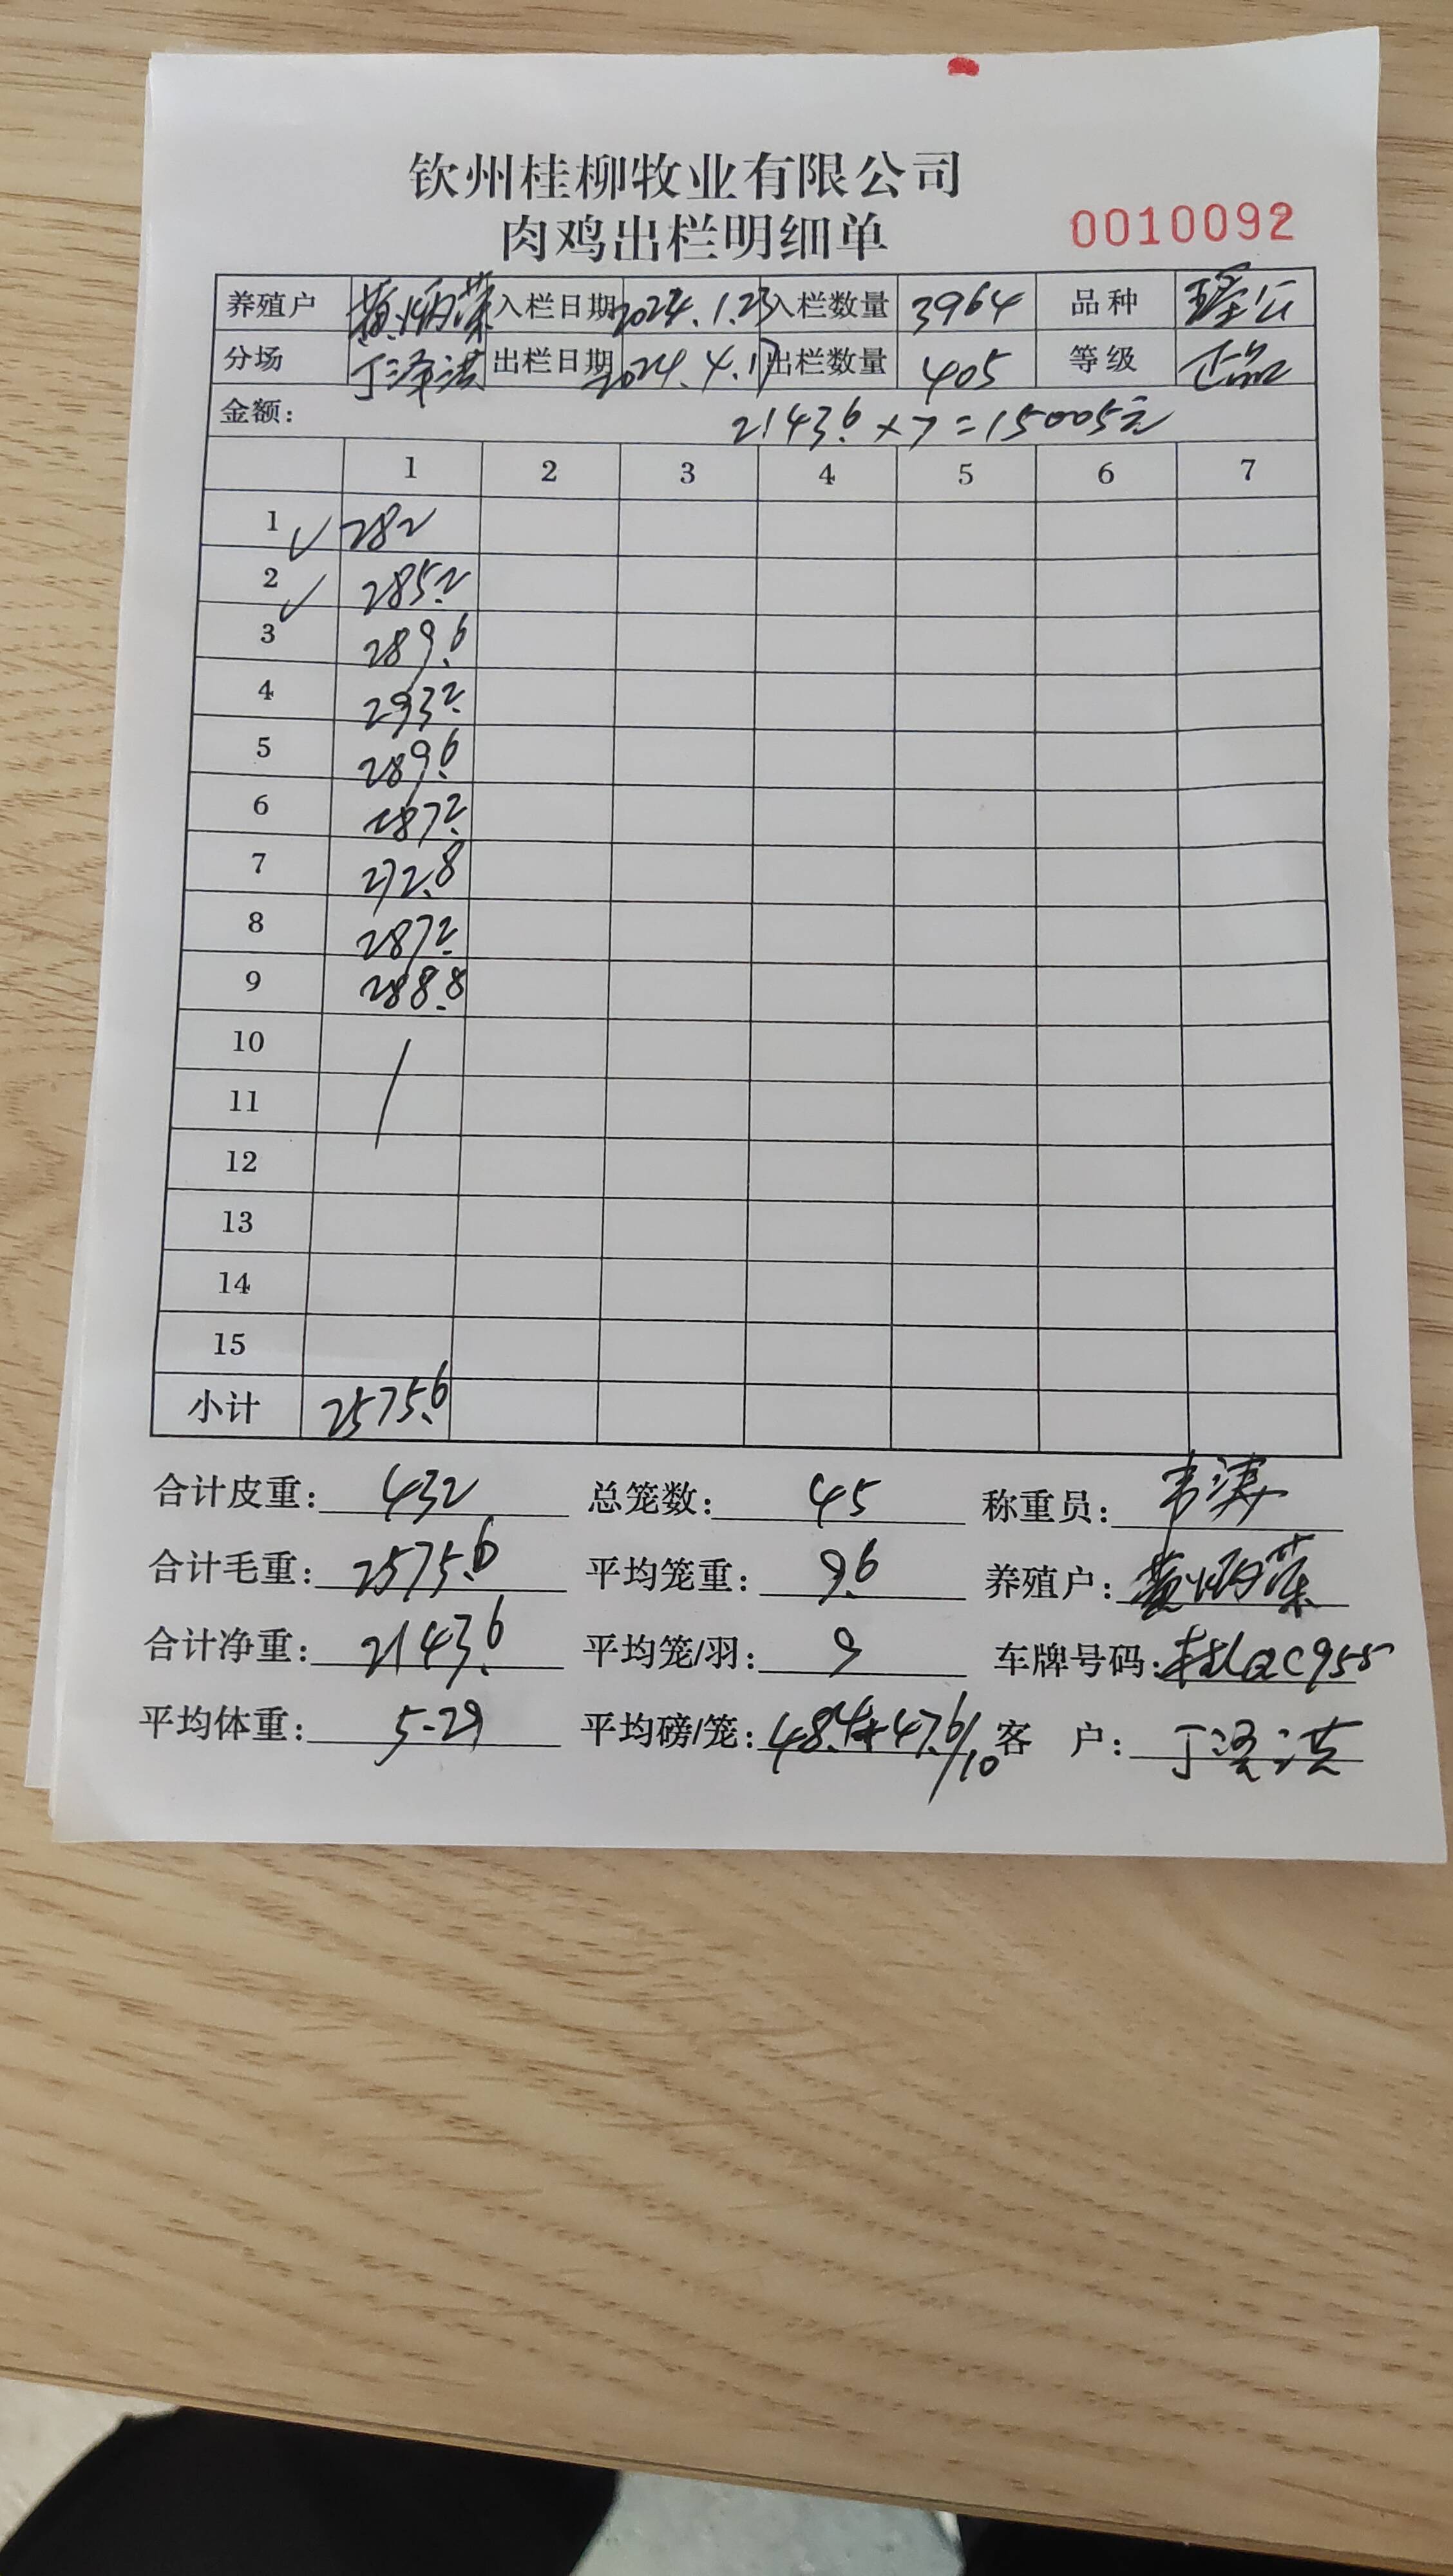 钦州桂柳牧业有限公司
肉鸡出栏明细单
0010092
养殖户 黄炳荣 入栏日期 2024.1.23 入栏数量 3964 品种 瑶公
分场 丁泽洪 出栏日期 2024.4.17 出栏数量 405 等级 正品
金额: 2143.6×7=15005元
1 2 3 4 5 6 7
1 ✓ 282
2 ✓ 285.2
3 289.6
4 293.2
5 289.6
6 287.2
7 272.8
8 287.2
9 288.8
10
11
12
13
14
15
小计 2575.6
合计皮重: 432 总笼数: 45 称重员: 韦涛
合计毛重: 2575.6 平均笼重: 9.6 养殖户: 黄炳荣
合计净重: 2143.6 平均笼/羽: 9 车牌号码: QC955
平均体重: 5.29 平均磅/笼: 48.4+47.6/10 客 户: 丁泽洪